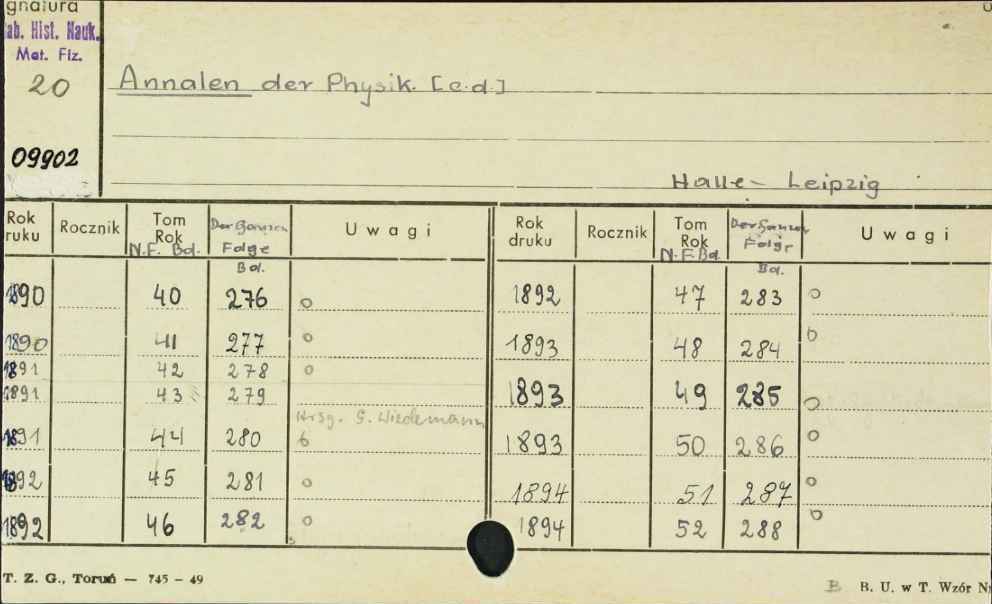 gnatura
ab. Hist. Nauk.
Mat. Fiz.
20
09902
Annalen der Physik. [c.d.]
Halle - Leipzig
Rok ruku Rocznik Tom Rok N.F. Bd. Der Ganzen Folge Bd. Uwagi Rok druku Rocznik Tom Rok N.F. Bd. Der Ganzen Folge Bd. Uwagi
1890 40 276 o 1892 47 283 o
1890 41 277 o 1893 48 284 o
1891 42 278 o
1891 43 279 1893 49 285 o
Hrsg. G. Wiedemann
1891 44 280 1893 50 286 o
1892 45 281 o 1894 51 287 o
1892 46 282 o 1894 52 288 o
T. Z. G., Toruń — 745 — 49
B B. U. w T. Wzór N